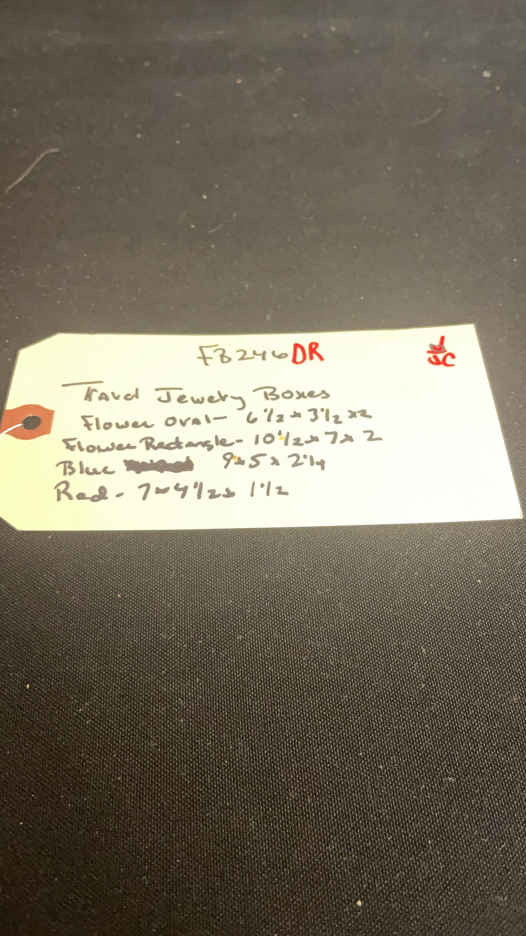 F8246DR
Travel Jewelry Boxes
Flower Oval - 6 1/2 x 3 1/2 x 2
Flower Rectangle - 10 1/2 x 7 x 2
Blue 9x5 x 2 1/4
Red - 7 x 4 1/2 x 1 1/2